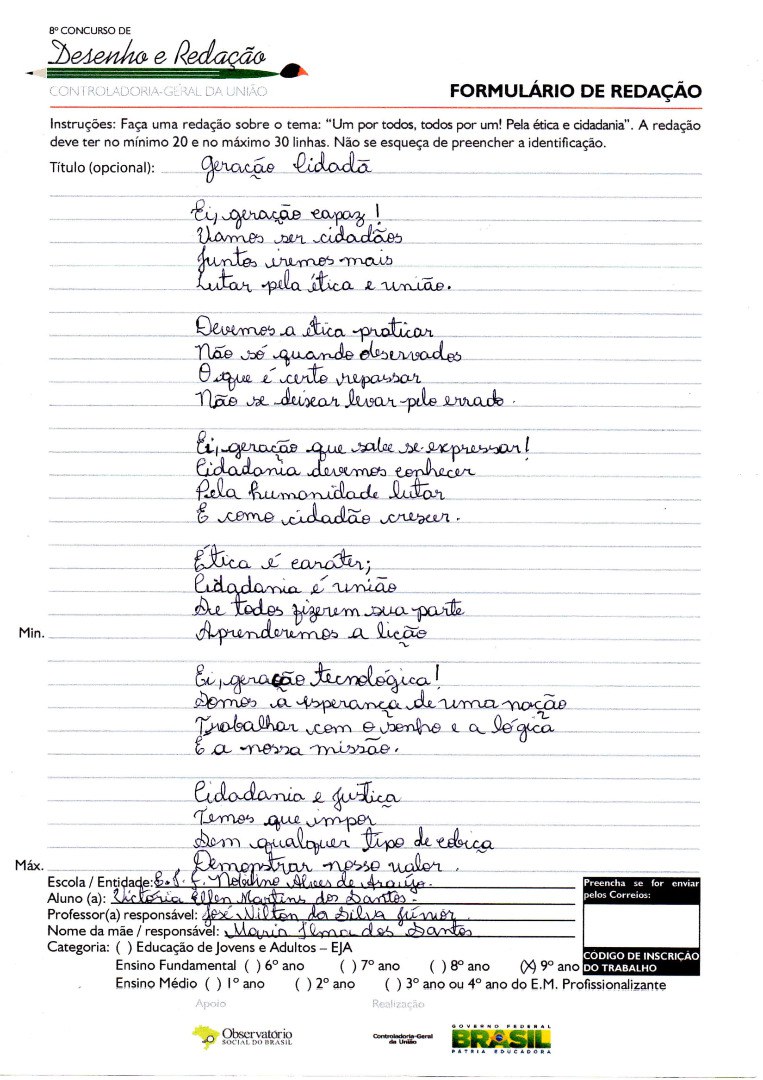 8º CONCURSO DE
Desenho e Redação
CONTROLADORIA-GERAL DA UNIÃO
FORMULÁRIO DE REDAÇÃO
Instruções: Faça uma redação sobre o tema: "Um por todos, todos por um! Pela ética e cidadania". A redação
deve ter no mínimo 20 e no máximo 30 linhas. Não se esqueça de preencher a identificação.
Título (opcional): Geração Cidadã
Ei, geração capaz!
Vamos ser cidadãos
Juntos iremos mais
Lutar pela ética e união.
Devemos a ética praticar
Não só quando observados
O que é certo repassar
Não se deixar levar pelo errado.
Ei, geração que sabe se expressar!
Cidadania devemos conhecer
Pela humanidade lutar
E como cidadão crescer.
Ética é caráter;
Cidadania é união
Se todos fizerem sua parte
Min. Aprenderemos a lição
Ei, geração tecnológica!
Somos a esperança de uma nação
Trabalhar com o sonho e a lógica
É a nossa missão.
Cidadania e justiça
Temos que impor
Sem qualquer tipo de cobiça
Máx. Demonstrar nosso valor.
Escola / Entidade: E.E.F. Nobilino Alves de Araújo.
Aluno (a): Victória Ellen Martins dos Santos.
Professor(a) responsável: José Nilton da Silva Júnior.
Nome da mãe / responsável: Maria Ilma dos Santos
Categoria: ( ) Educação de Jovens e Adultos – EJA
Ensino Fundamental ( ) 6º ano ( ) 7º ano ( ) 8º ano (X) 9º ano
Ensino Médio ( ) 1º ano ( ) 2º ano ( ) 3º ano ou 4º ano do E.M. Profissionalizante
Preencha se for enviar
pelos Correios:
CÓDIGO DE INSCRIÇÃO
DO TRABALHO
Apoio
Realização
Observatório
SOCIAL DO BRASIL
Controladoria-Geral
da União
GOVERNO FEDERAL
BRASIL
PÁTRIA EDUCADORA